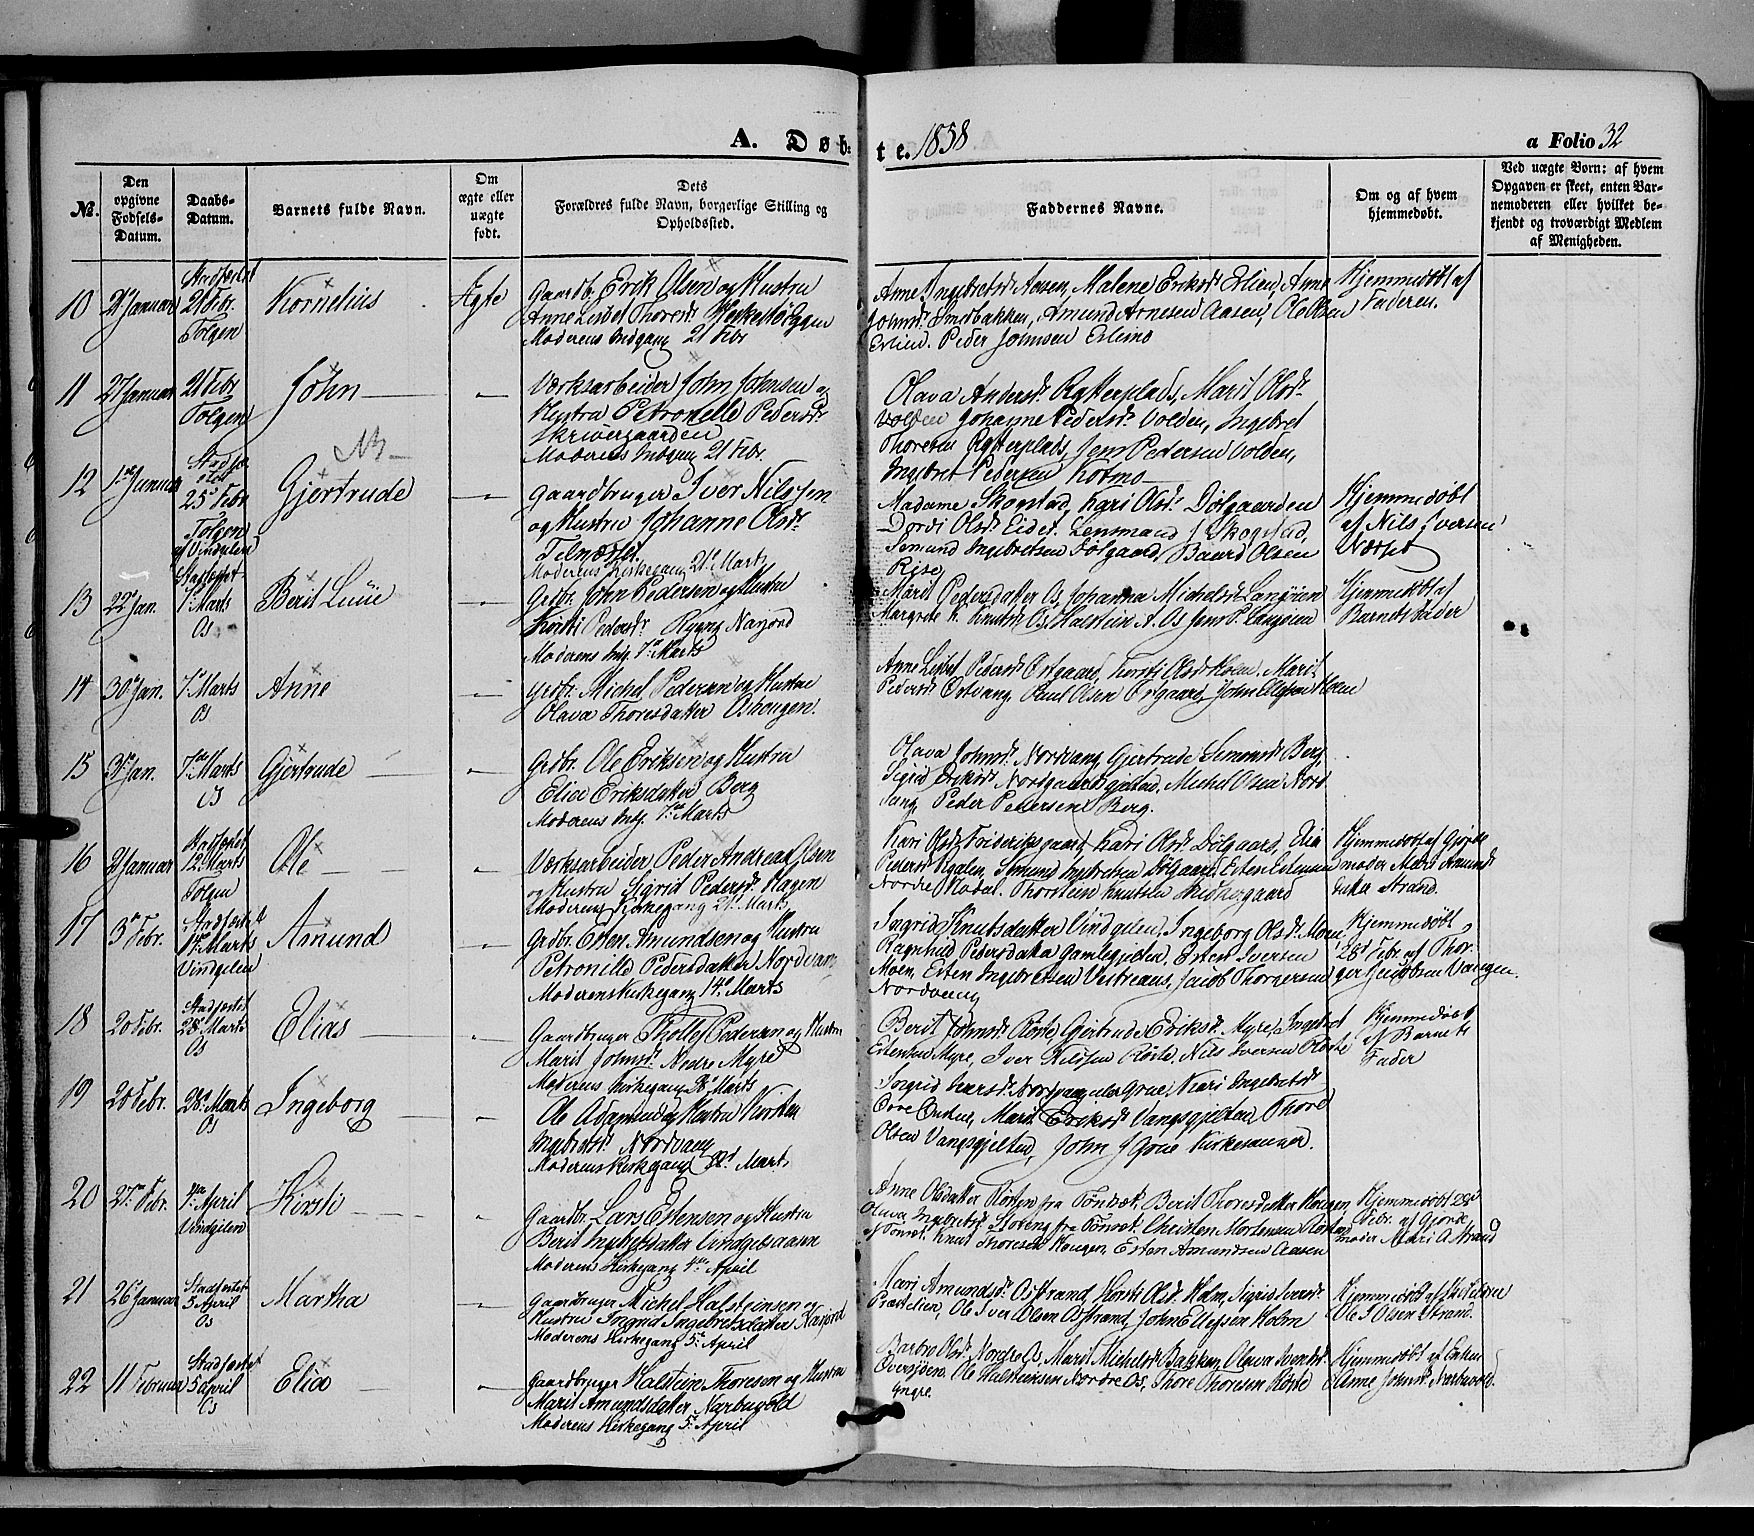 A. Døb-te. 1858
a Folio 32
No.
Den opgivne Fødsels-Datum.
Daabs-Datum.
Barnets fulde Navn.
Om ægte eller uægte født.
Dets Forældres fulde Navn, borgerlige Stilling og Opholdssted.
Faddernes Navne.
Om og af hvem hjemmedøbt.
Ved uægte Børn: af hvem Opgaven er skeet, enten Barnemoderen eller hvilket bekjendt og troværdigt Medlem af Menigheden.
10
Januar
Stadfæstet
21 Febr.
Tolgen
Kornelius
Ægte
Gaardb. Erik Olsen og Hustru
Anne Lisbet Thoresd.
Moderens Indgang 21 Febr
Anne Ingebretsd. Aasen, Malene Eriksd. Erlien, Anne
Johnsd. Smedbakken, Amund Arnesen Aasen, Ole Olsen
Erlien. Peder Johnsen Erlien
Hjemmedøbt af
Faderen.
11
27 Januar
21 Febr
Tolgen
John
Værksarbeider John Johnsen og
Hustru Petronelle Pedersd.
Skrivergaarden
Moderens Indgang 21 Febr.
Olava Andersd. Rytterplads, Marit Olsd.
Volden Johanne Pedersd. Volden, Ingebret
Thoresen Rytterplads, Jens Pedersen Volden,
Ingebret Pedersen Kotmo
NB
12
1 Januar
25 Febr
Tolgen
af Vindgelen
Gjertrude
Gaardbruger Iver Nilssen
og Hustru Johanne Olsd.
Telnæsset
Moderens Kirkegang 21 Marts
Madame Skogstad, Kari Olsd. Dølgaarden
Dordi Olsd. Eidet. Lensmand J. Skogstad,
Semund Ingebretsen Dølgaard, Baard Olsen
Rise
Hjemmedøbt
af Nils Iversen
13
22 Jan.
7 Marts
Os
Berit Luiie
Grdbr. John Pedersen og Hustru
Kirsti Pedersd. Rygg Narjord
Moderens Indg. 7 Marts
Marit Pedersdatter Os, Johanna Michelsd. Langøien
Margrete K. Knutsd. Os, Halstein A. Os Jens P. Langøien
Hjemmedøbt af
Barnets Fader
14
30 Jan.
7 Marts
Os
Anne
Grdbr. Michel Pedersen og Hustru
Olava Thoresdatter Oshougen.
Anne Lisbet Pedersd. Osgaard, Kirsti Olsd. Holm. Marit
Pedersd. Østvang, Paul Olsen Osgaard, John Ellefsen Holm
15
Jan.
7 Marts
Os
Gjertrude
Grdbr. Ole Eriksen og Hustru
Elise Eriksdatter Berg
Moderens Indg. 7 Marts
Olava Johnsd. Nordvang, Gjertrude Semundsd. Berg,
Sigrid Eriksd. Nordgaardsgjelten, Michel Olsen Nord
vang, Peder Pedersen Berg.
16
Januar
Stadfæstet
12 Marts
Tolgen
Ole
Værksarbeider Peder Andreas Olsen
og Hustru Sigrid Pedersd. Hagen
Moderens Kirkegang 21 Marts
Kari Olsd. Frideriksgaard, Kari Olsd. Dølgaard, Elie
Pedersd. Semund Ingebretsen Dølgaard, Esten Estensen
Nordre Thorstein Knutsen
Hjemmedøbt af Gjorde
moder Mari Amunds
datter Strand.
17
3 Febr.
Stadfæstet
14 Marts
Vindgelen
Amund
Grdbr. Esten Amundsen og Hustru
Petronille Pedersdatter Nordvang
Moderens Kirkegang 14 Marts
Ingrid Knutsdatter Vindgelen, Ingeborg Olsd. Moen,
Ragnhild Pedersdatter Gamlegjelten, Esten Iversen
Moen, Esten Ingebretsen Jacob Thorgersen
Nordvang
Hjemmedøbt
28 Febr. af Thor
ger Jacobsen Vangen.
18
20 Febr.
Stadfæstet
28 Marts
Os
Elias
Gaardbruger Tholef Pedersen og Hustru
Marit Johnsd. Nedre Myre
Moderens Kirkegang 28 Marts
Berit Johnsd. Røste Gjertrude Eriksd. Myre, Ingebret
Estensen Myre, Iver Nilssen Røste, Nils Iversen Røste
Hjemmedøbt
af Barnets
Fader
19
20 Febr.
28 Marts
Os
Ingeborg
Ole Adamsen og Hustru Kirsten
Ingebretsd. Nordvang
Moderens Kirkegang 28 Marts
Ingrid Nordvang Kari Ingebretsd.
Marit Eriksd. Vangsgjelten, Thore
Olsen Vangsgjelten, John J.
20
27 Febr.
4 April
Vindgelen
Kirsti
Gaardbr. Lars Estensen og Hustru
Berit Ingebretsdatter Vindgelsaasen
Moderens Kirkegang 4 April
Anne Olsdatter Røsten fra Tønset, Berit Thoresdatter Hougen,
Olava Ingebretsd. fra Tønset. Christen Mortensen Røsten
af Tønset. Knut Thoresen Hougen, Esten Amundsen Aasen
Hjemmedøbt 28
Febr. af Gjorde
moder Mari A Strand
21
26 Januar
Stadfæstet
5 April
Os
Martha
Gaardbruger Michel Halsteinsen og
Hustru Ingrid Ingebretsdatter Narjord
Moderens Kirkegang 5 April
Mari Amundsd. Osstrand, Kirsti Olsd. Holm, Sigrid Iversd.
Præstelien, Ole Iver Olsen Osstrand, John Ellefsen Holm
Hjemmedøbt af
Ole I Olsen Strand.
22
11 Februar
Stadfæstet
5 April
Os
Elise
Gaardbruger Halstein Thoresen og Hustru
Marit Amundsdatter Narbuvold
Moderens Kirkegang 5 April
Barbro Olsd. Nordre Os, Marit Michelsd. Bakken, Olava Iversd.
Oversjøen. Ole Halsteinsen Nordre Os, Thore Thoresen Røste
yngre.
Hjemmedøbt af Enken
Anne Johnsd. Narbuvold.